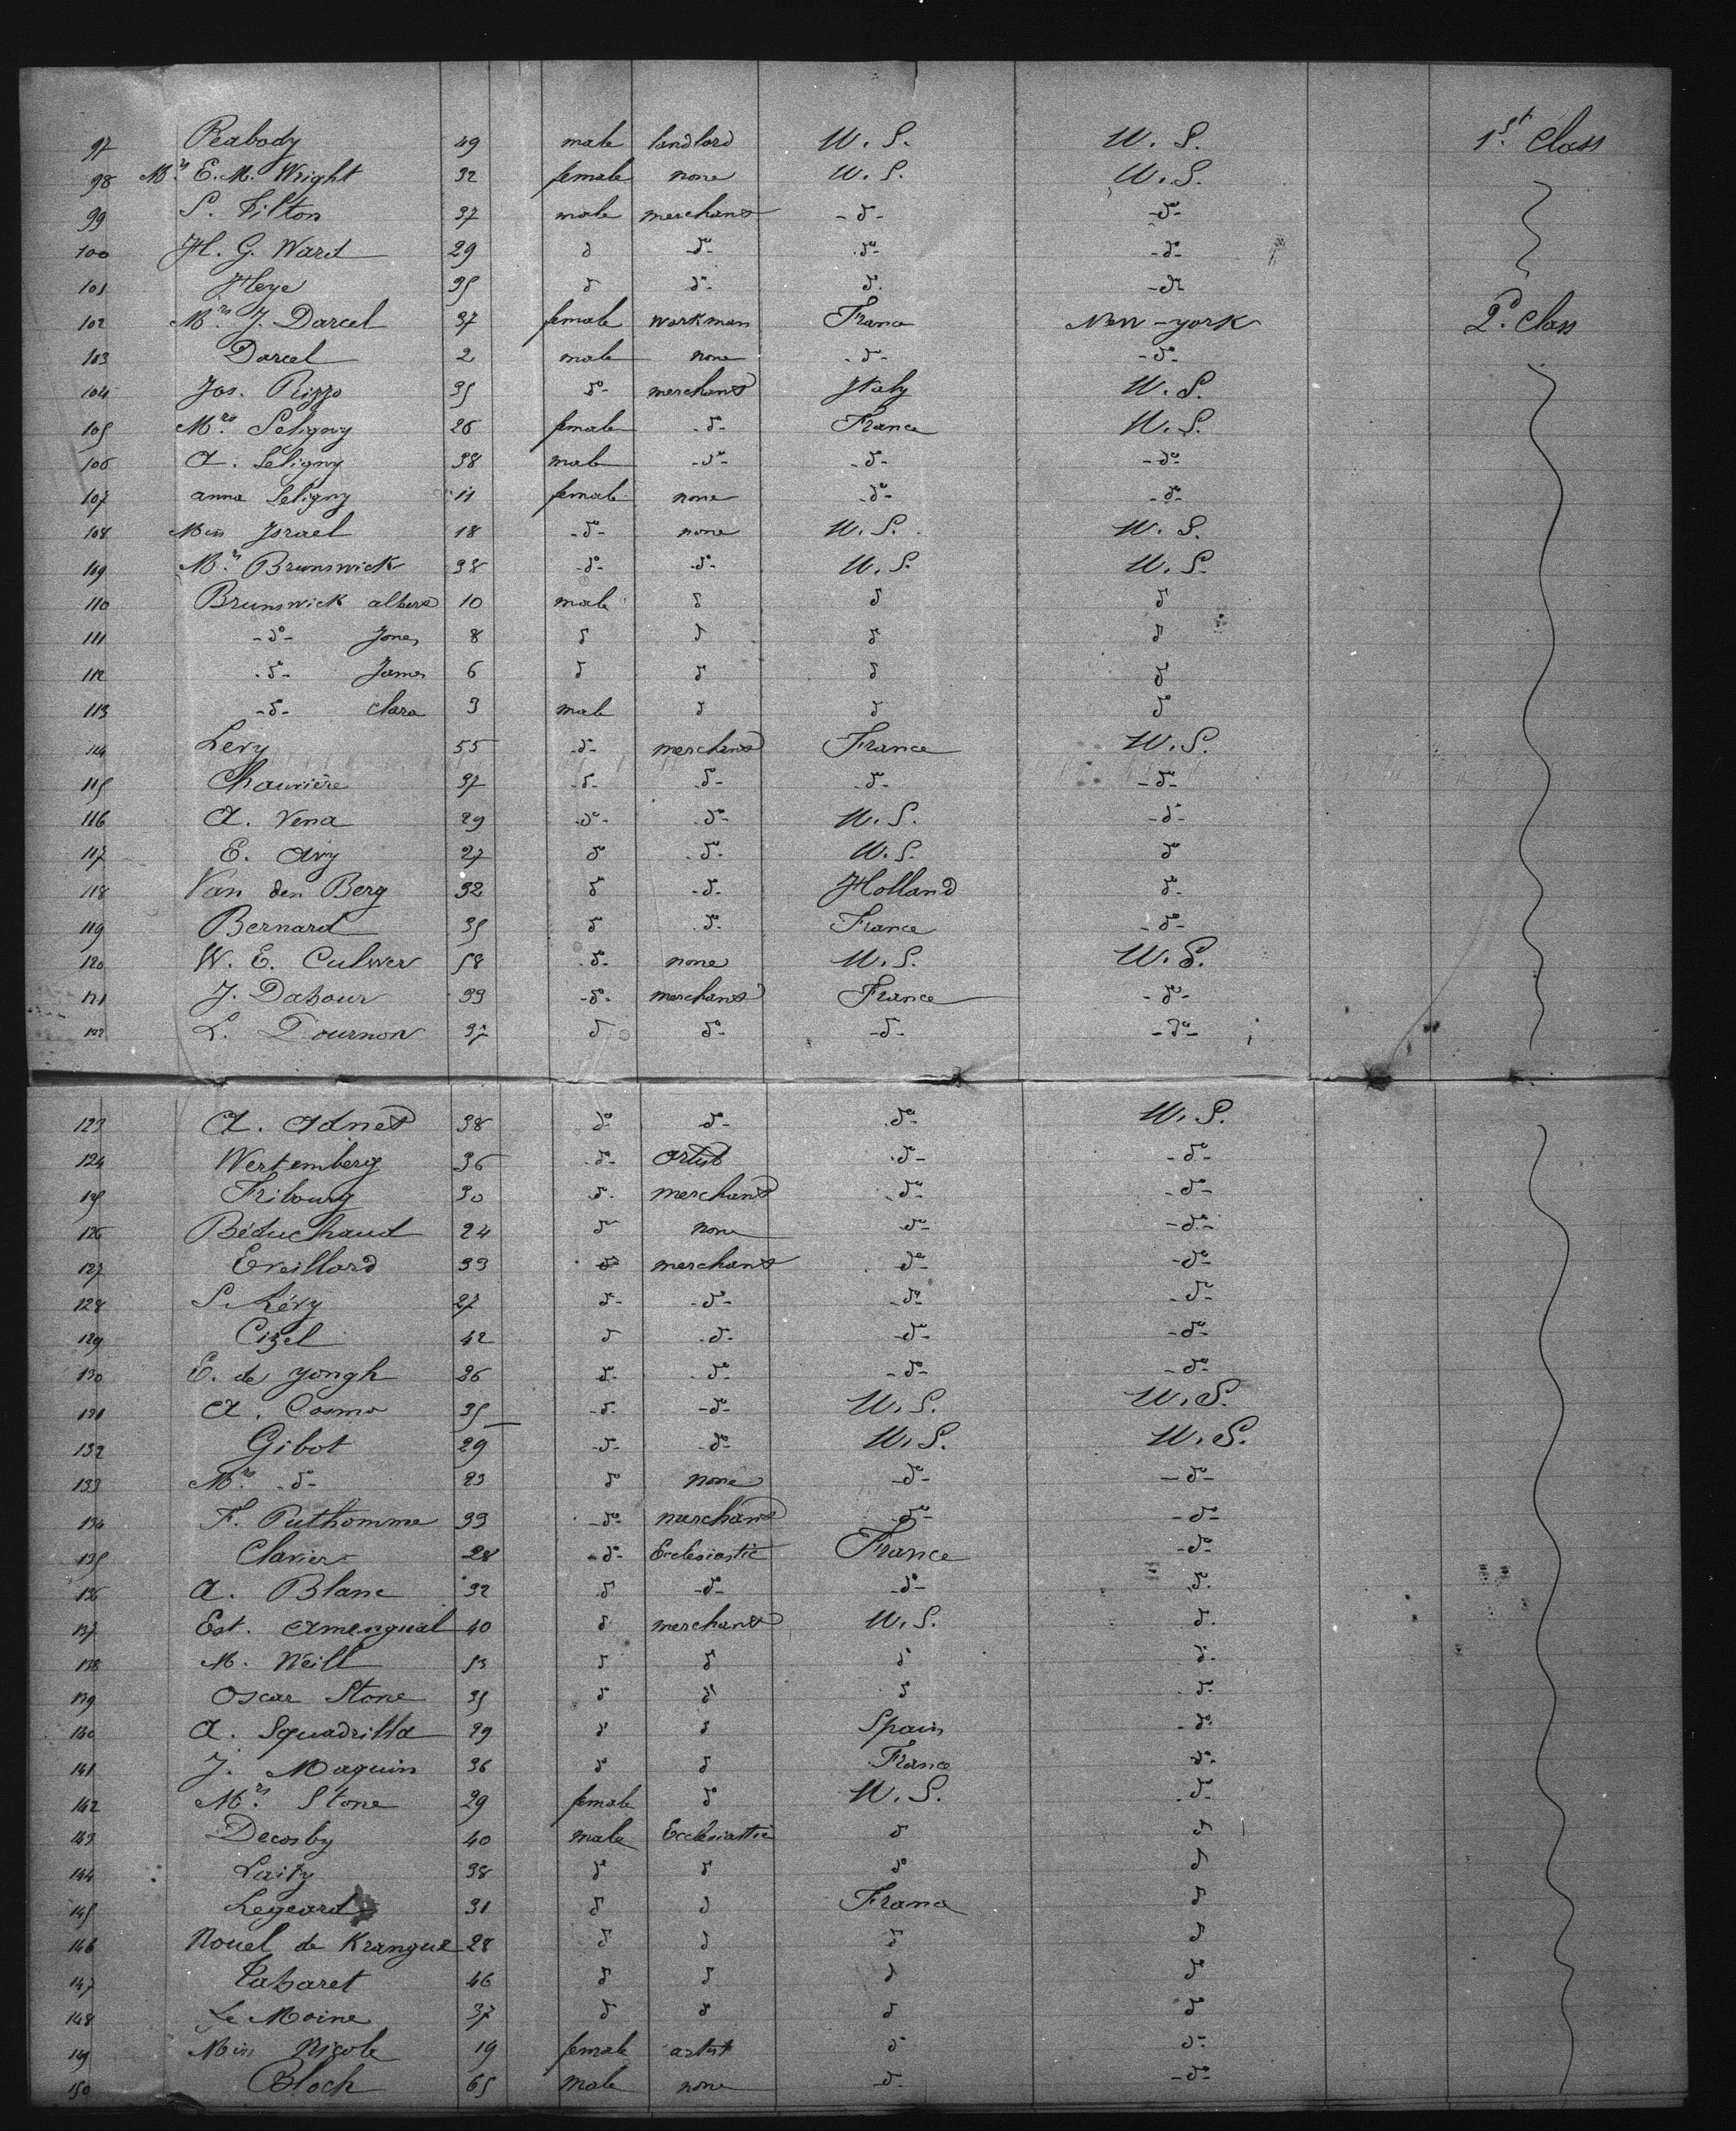 97 Peabody 49 male landlord U. S. U. S. 1st Class
98 Mrs E. M. Wright 32 female none U. S. U. S.
99 S. Tilton 37 male merchant - do - - do -
100 H. G. Ward 29 do - do - - do - - do -
101 Heye 35 do do - do - do -
102 Mrs J. Darcel 37 female workman France New-york 2d Class
103 Darcel 2 male none - do - - do -
104 Jos. Rizzo 35 do - merchant Italy U. S.
105 Mrs Seligny 26 female - do - France U. S.
106 A. Seligny 38 male - do - - do - - do -
107 anna Seligny 11 female none - do - - do -
108 Miss Israel 18 - do - none U. S. U. S.
109 Mrs Brunswick 38 - do - - do - U. S. U. S.
110 Brunswick albert 10 male do do do
111 - do - Jones 8 do do do do
112 - do - James 6 do do do do
113 - do - clara 3 male do do do
114 Levy 55 - do - merchant France U. S.
115 Chauvière 37 - do - - do - - do - - do -
116 A. Vena 29 - do - - do - U. S. - do -
117 E. Avy 27 do - do - U. S. do
118 Van den Berg 32 do - do - Holland do -
119 Bernard 35 do - do - France - do -
120 W. E. Culver 58 - do - none U. S. U. S.
121 J. Dabour 33 - do - merchant France - do -
122 L. Tournon 37 do do - - do - - do -
123 A. Adnet 38 do do - - do - U. S.
124 Wertemberg 36 - do - artist - do - - do -
125 Fribourg 30 - do - merchant - do - - do -
126 Béduchaud 24 do none - do - - do -
127 Eveillard 33 do merchant - do - - do -
128 S. Lévy 27 do - - do - - do - - do -
129 Cizel 42 do - do - - do - - do -
130 E. de Jongh 26 do - - do - - do - - do -
131 A. Cosmo 35 - do - - do - U. S. U. S.
132 Gibot 29 - do - - do - U. S. U. S.
133 Mrs - do - 23 do none - do - - do -
134 F. Puthomme 33 - do - marchand - do - - do -
135 Clavier 28 - do - Ecclesiastic France - do -
136 A. Blanc 32 do - do - - do - do -
137 Est. Amengual 40 do merchant U. S. do -
138 M. Weill 53 do do do do -
139 Oscar Stone 35 do do do do -
140 A. Squadrilla 29 do do Spain - do -
141 J. Maguin 36 do do France do -
142 Mrs Stone 29 female do U. S. do -
143 Decosby 40 male Ecclesiastic do do
144 Laity 38 do do do do
145 Legeard 31 do do France do
146 Nouel de Krangue 28 do do do do
147 Cabaret 46 do do do do
148 Le Moine 37 do do do do
149 Miss Nicole 19 female artist do do -
150 Bloch 65 male none - do - - do -